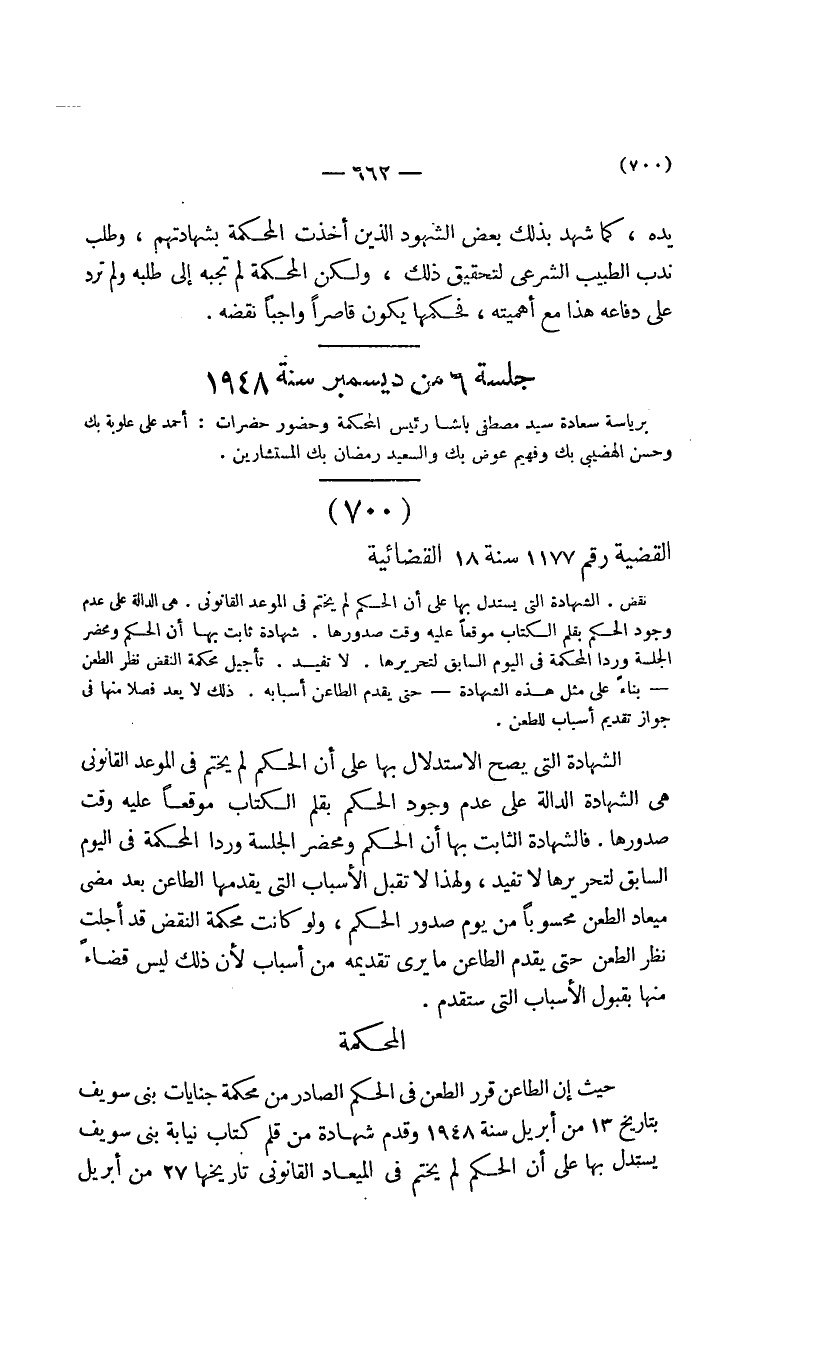 (٧٠٠)
— ٦٦٢ —
يده ، كما شهد بذلك بعض الشهود الذين أخذت المحكمة بشهادتهم ، وطلب
ندب الطبيب الشرعى لتحقيق ذلك ، ولكن المحكمة لم تجبه إلى طلبه ولم ترد
على دفاعه هذا مع أهميته ، فحكمها يكون قاصراً واجباً نقضه .
جلسة ٦ من ديسمبر سنة ١٩٤٨
برياسة سعادة سيد مصطفى باشا رئيس المحكمة وحضور حضرات : أحمد على علوبة بك
وحسن الهضيبى بك وفهيم عوض بك والسعيد رمضان بك المستشارين .
(٧٠٠)
القضية رقم ١١٧٧ سنة ١٨ القضائية
نقض . الشهادة التى يستدل بها على أن الحكم لم يختم فى الموعد القانونى . هى الدالة على عدم
وجود الحكم بقلم الكتاب موقعاً عليه وقت صدورها . شهادة ثابت بها أن الحكم ومحضر
الجلسة وردا المحكمة فى اليوم السابق لتحريرها . لا تفيد . تأجيل محكمة النقض نظر الطعن
— بناءً على مثل هذه الشهادة — حتى يقدم الطاعن أسبابه . ذلك لا يعد فصلا منها فى
جواز تقديم أسباب للطعن .
الشهادة التى يصح الاستدلال بها على أن الحكم لم يختم فى الموعد القانونى
هى الشهادة الدالة على عدم وجود الحكم بقلم الكتاب موقعاً عليه وقت
صدورها . فالشهادة الثابت بها أن الحكم ومحضر الجلسة وردا المحكمة فى اليوم
السابق لتحريرها لا تفيد ، ولهذا لا تقبل الأسباب التى يقدمها الطاعن بعد مضى
ميعاد الطعن محسوباً من يوم صدور الحكم ، ولو كانت محكمة النقض قد أجلت
نظر الطعن حتى يقدم الطاعن ما يرى تقديمه من أسباب لأن ذلك ليس قضاءً
منها بقبول الأسباب التى ستقدم .
المحكمة
حيث إن الطاعن قرر الطعن فى الحكم الصادر من محكمة جنايات بنى سويف
بتاريخ ١٣ من أبريل سنة ١٩٤٨ وقدم شهادة من قلم كتاب نيابة بنى سويف
يستدل بها على أن الحكم لم يختم فى الميعاد القانونى تاريخها ٢٧ من أبريل